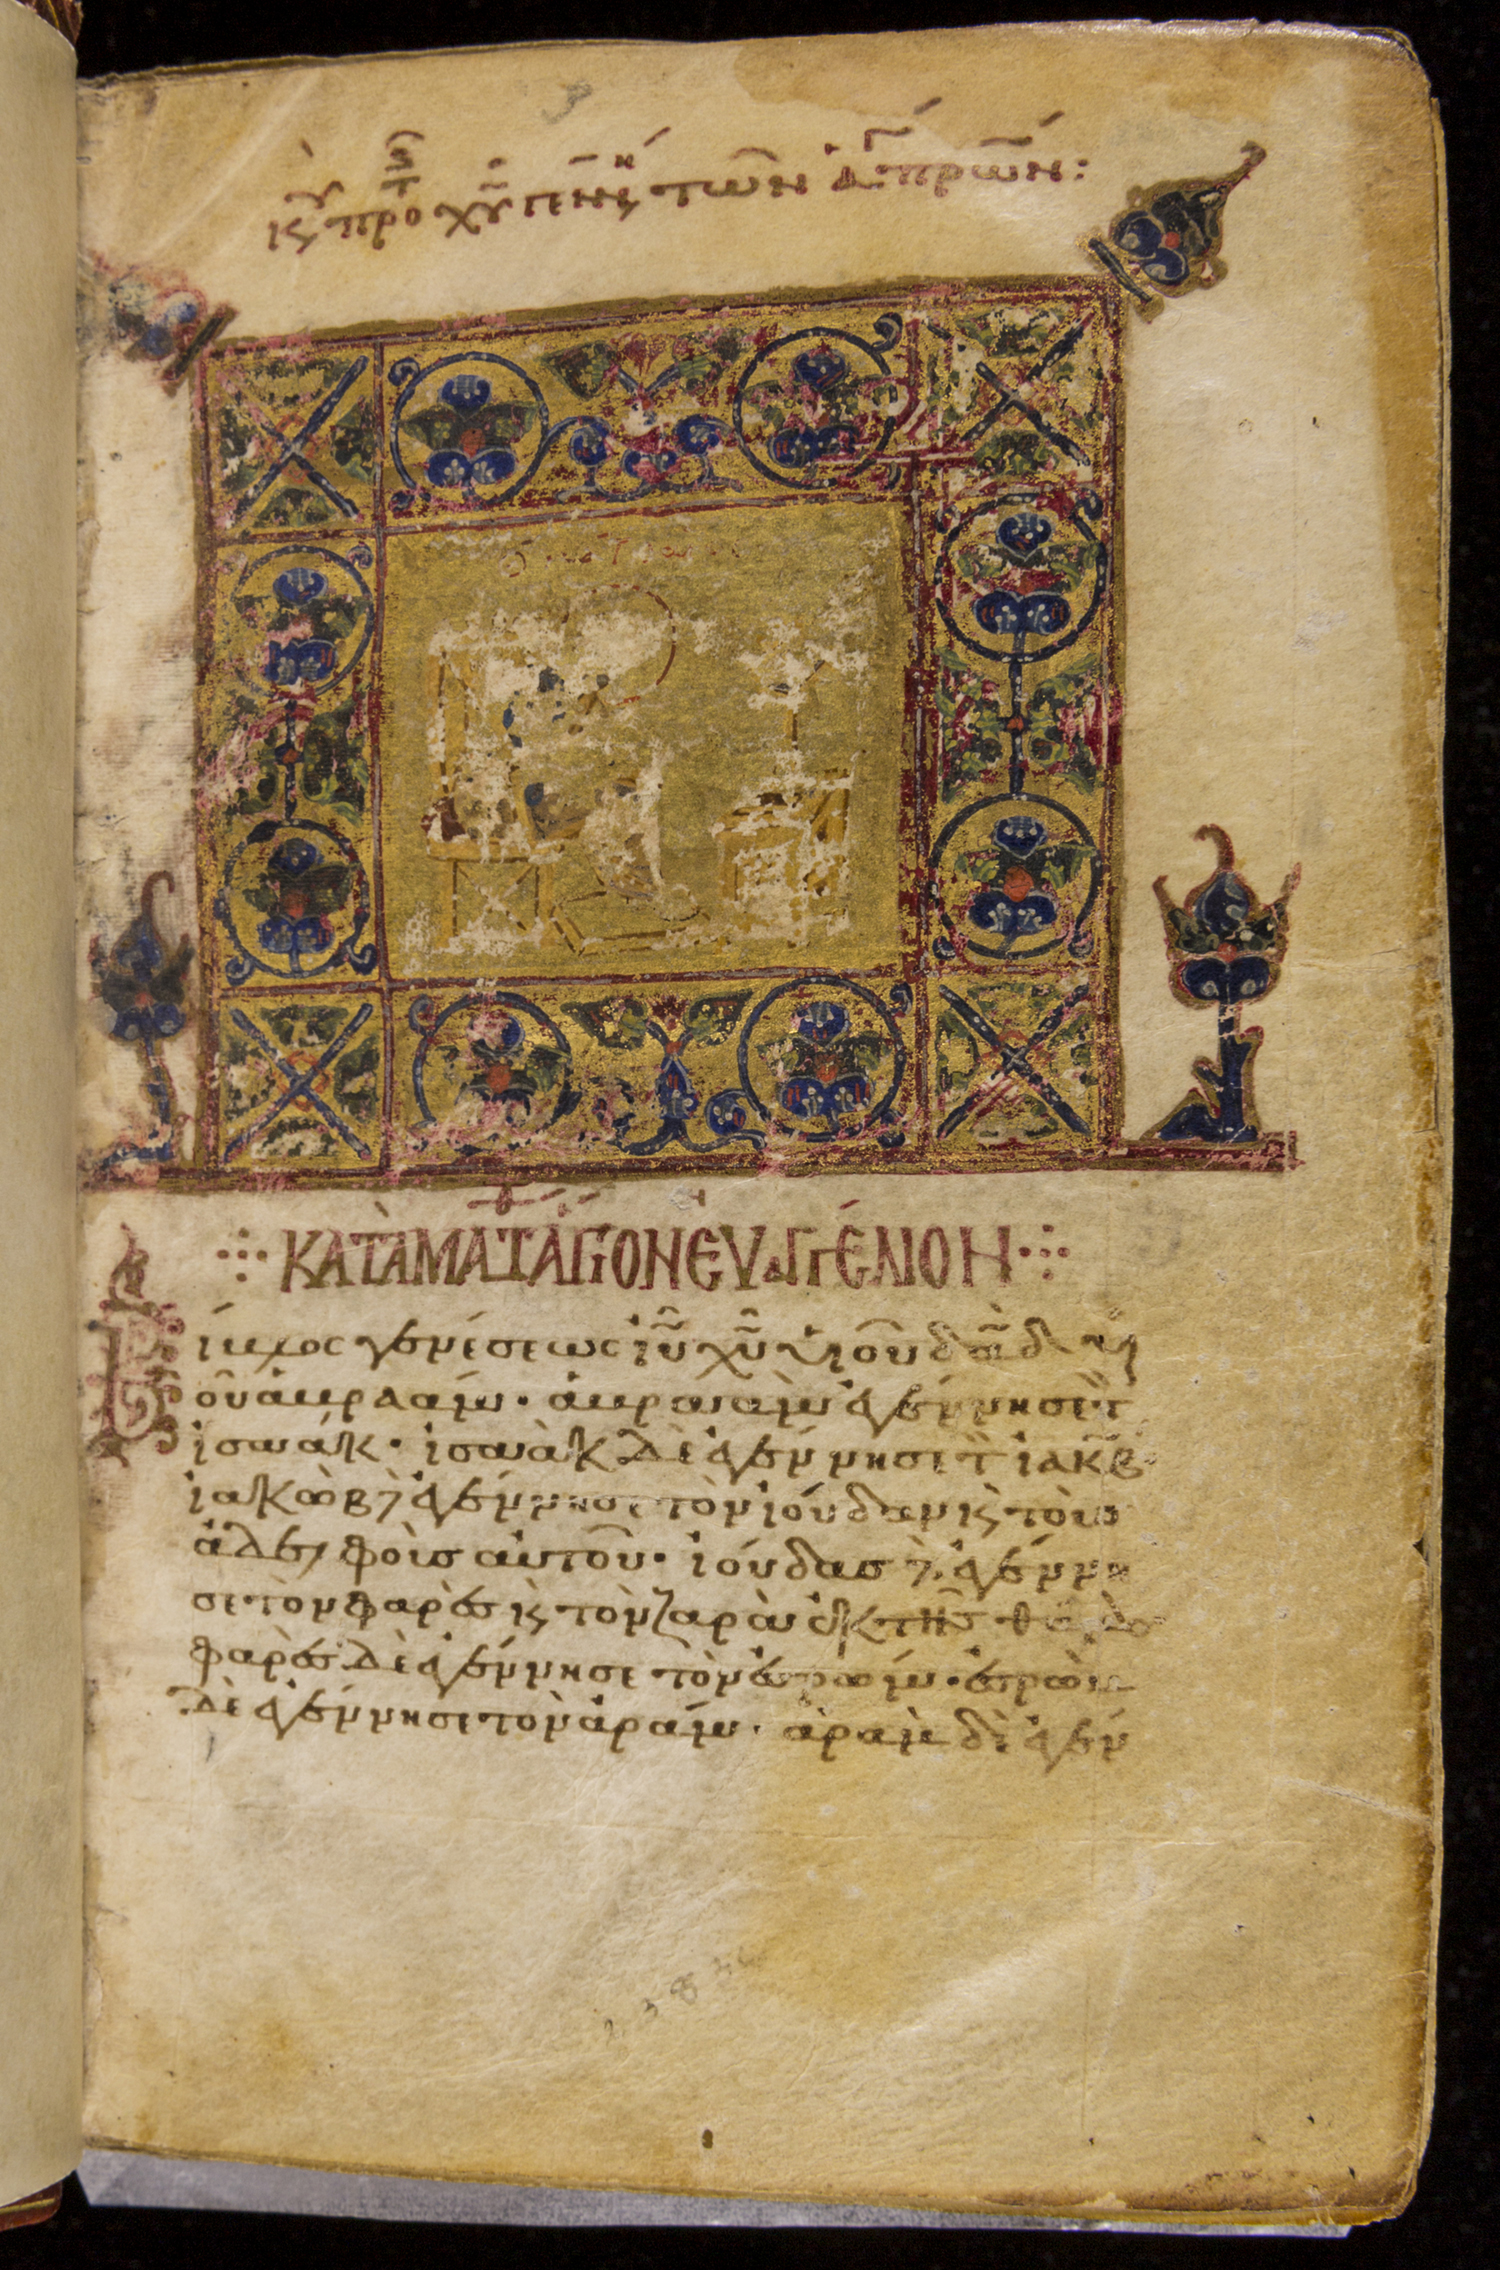 Κυ πρὸ τ χυ γενν των αγ πρων:
ΚΑΤᾺ ΜΑΤ ἍΓΙΟΝ ΕΥΑΓΓΈΛΙΟΝ
ίβλος γενέσεως ιυ χυ υἱοῦ δαδ υἱ
οῦ ἀβραάμ· ἀβραὰμ ἐγέννησε τ
ἰσαάκ· ἰσαὰκ δὲ ἐγέννησε τ ἰακβ
ἰακὼβ δ ἐγέννησε τὸν ἰούδαν κ τοὺς
ἀδελφοὺς αὐτοῦ· ἰούδας δ ἐγέννη
σε τὸν φαρὲς κ τὸν ζαρὰ ἐκ τῆς
φαρὲς δὲ ἐγέννησε τὸν ἐσρώμ· ἐσρὼμ
δὲ ἐγέννησε τὸν ἀράμ· ἀρὰμ δὲ ἐγέν